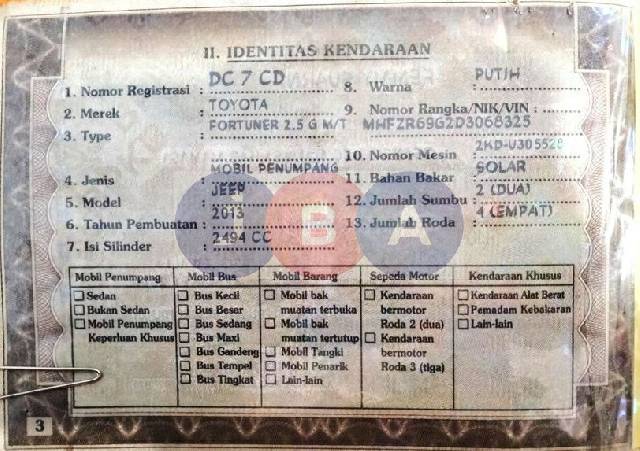 II. IDENTITAS KENDARAAN
1. Nomor Registrasi : DC 7 CD
2. Merek : TOYOTA
3. Type : FORTUNER 2.5 G M/T
4. Jenis : MOBIL PENUMPANG
5. Model : JEEP
6. Tahun Pembuatan : 2013
7. Isi Silinder : 2494 CC
8. Warna : PUTIH
9. Nomor Rangka/NIK/VIN :
MHFZR69G2D3068325
10. Nomor Mesin : 2KD-U305528
11. Bahan Bakar : SOLAR
12. Jumlah Sumbu : 2 (DUA)
13. Jumlah Roda : 4 (EMPAT)
BA
Mobil Penumpang
Sedan
Bukan Sedan
Mobil Penumpang
Keperluan Khusus
Mobil Bus
Bus Kecil
Bus Besar
Bus Sedang
Bus Maxi
Bus Gandeng
Bus Tempel
Bus Tingkat
Mobil Barang
Mobil bak
muatan terbuka
Mobil bak
muatan tertutup
Mobil Tangki
Mobil Penarik
Lain-lain
Sepeda Motor
Kendaraan
bermotor
Roda 2 (dua)
Kendaraan
bermotor
Roda 3 (tiga)
Kendaraan Khusus
Kendaraan Alat Berat
Pemadam Kebakaran
Lain-lain
3